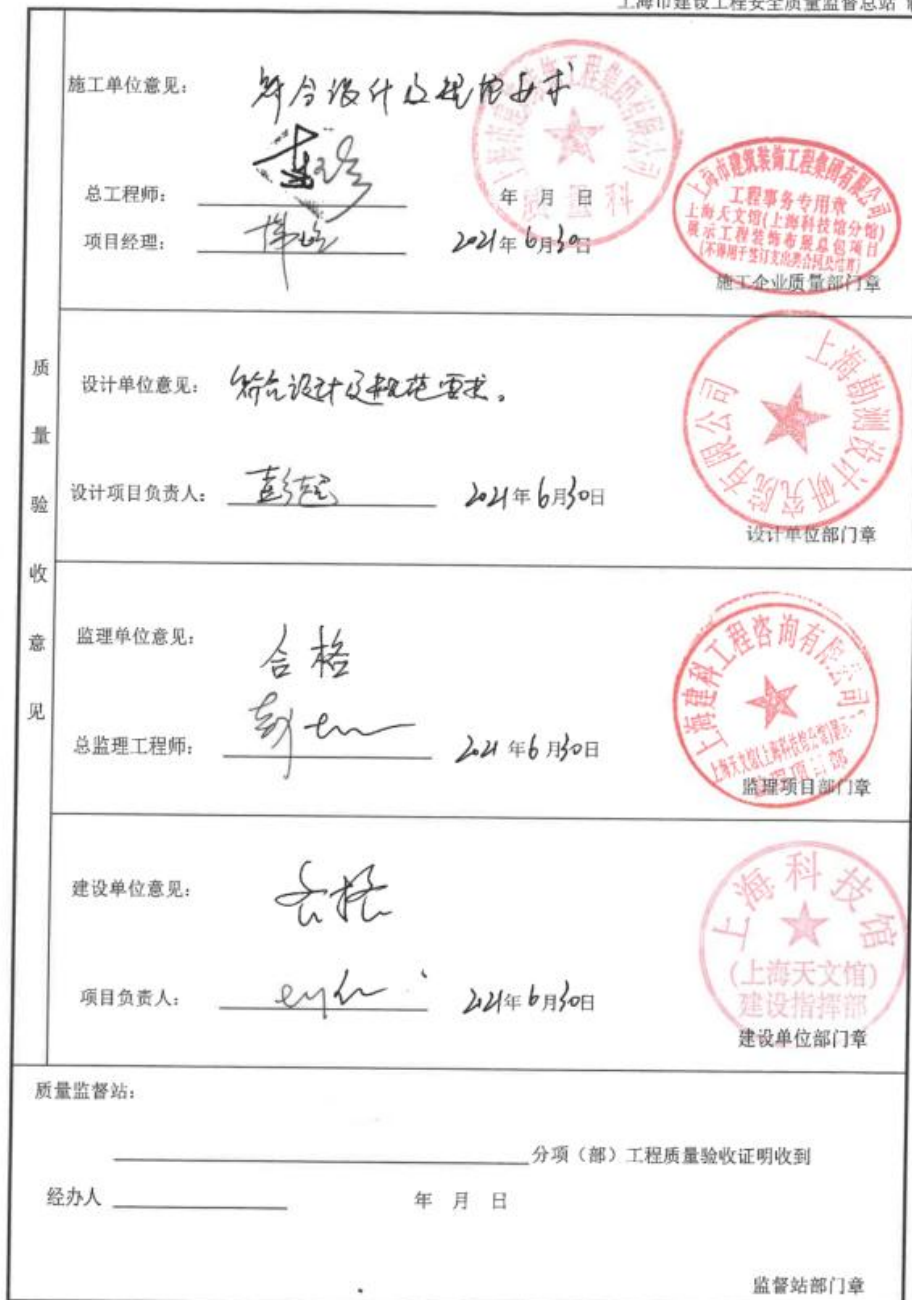 上海市建设工程安全质量监督总站
质量验收意见
施工单位意见：
符合设计及规范要求
总工程师：
年 月 日
项目经理：
2021年6月30日
施工企业质量部门章
质量科
上海市建筑装饰工程集团有限公司
工程事务专用章
上海天文馆(上海科技馆分馆)
展示工程装饰布展总包项目
设计单位意见：
符合设计及规范要求。
设计项目负责人：
2021年6月30日
上海勘测设计研究院有限公司
设计单位部门章
监理单位意见：
合格
总监理工程师：
2021年6月30日
上海建科工程咨询有限公司
监理项目部门章
建设单位意见：
合格
项目负责人：
2021年6月30日
上海科技馆
(上海天文馆)
建设指挥部
建设单位部门章
质量监督站：
分项（部）工程质量验收证明收到
经办人
年 月 日
监督站部门章